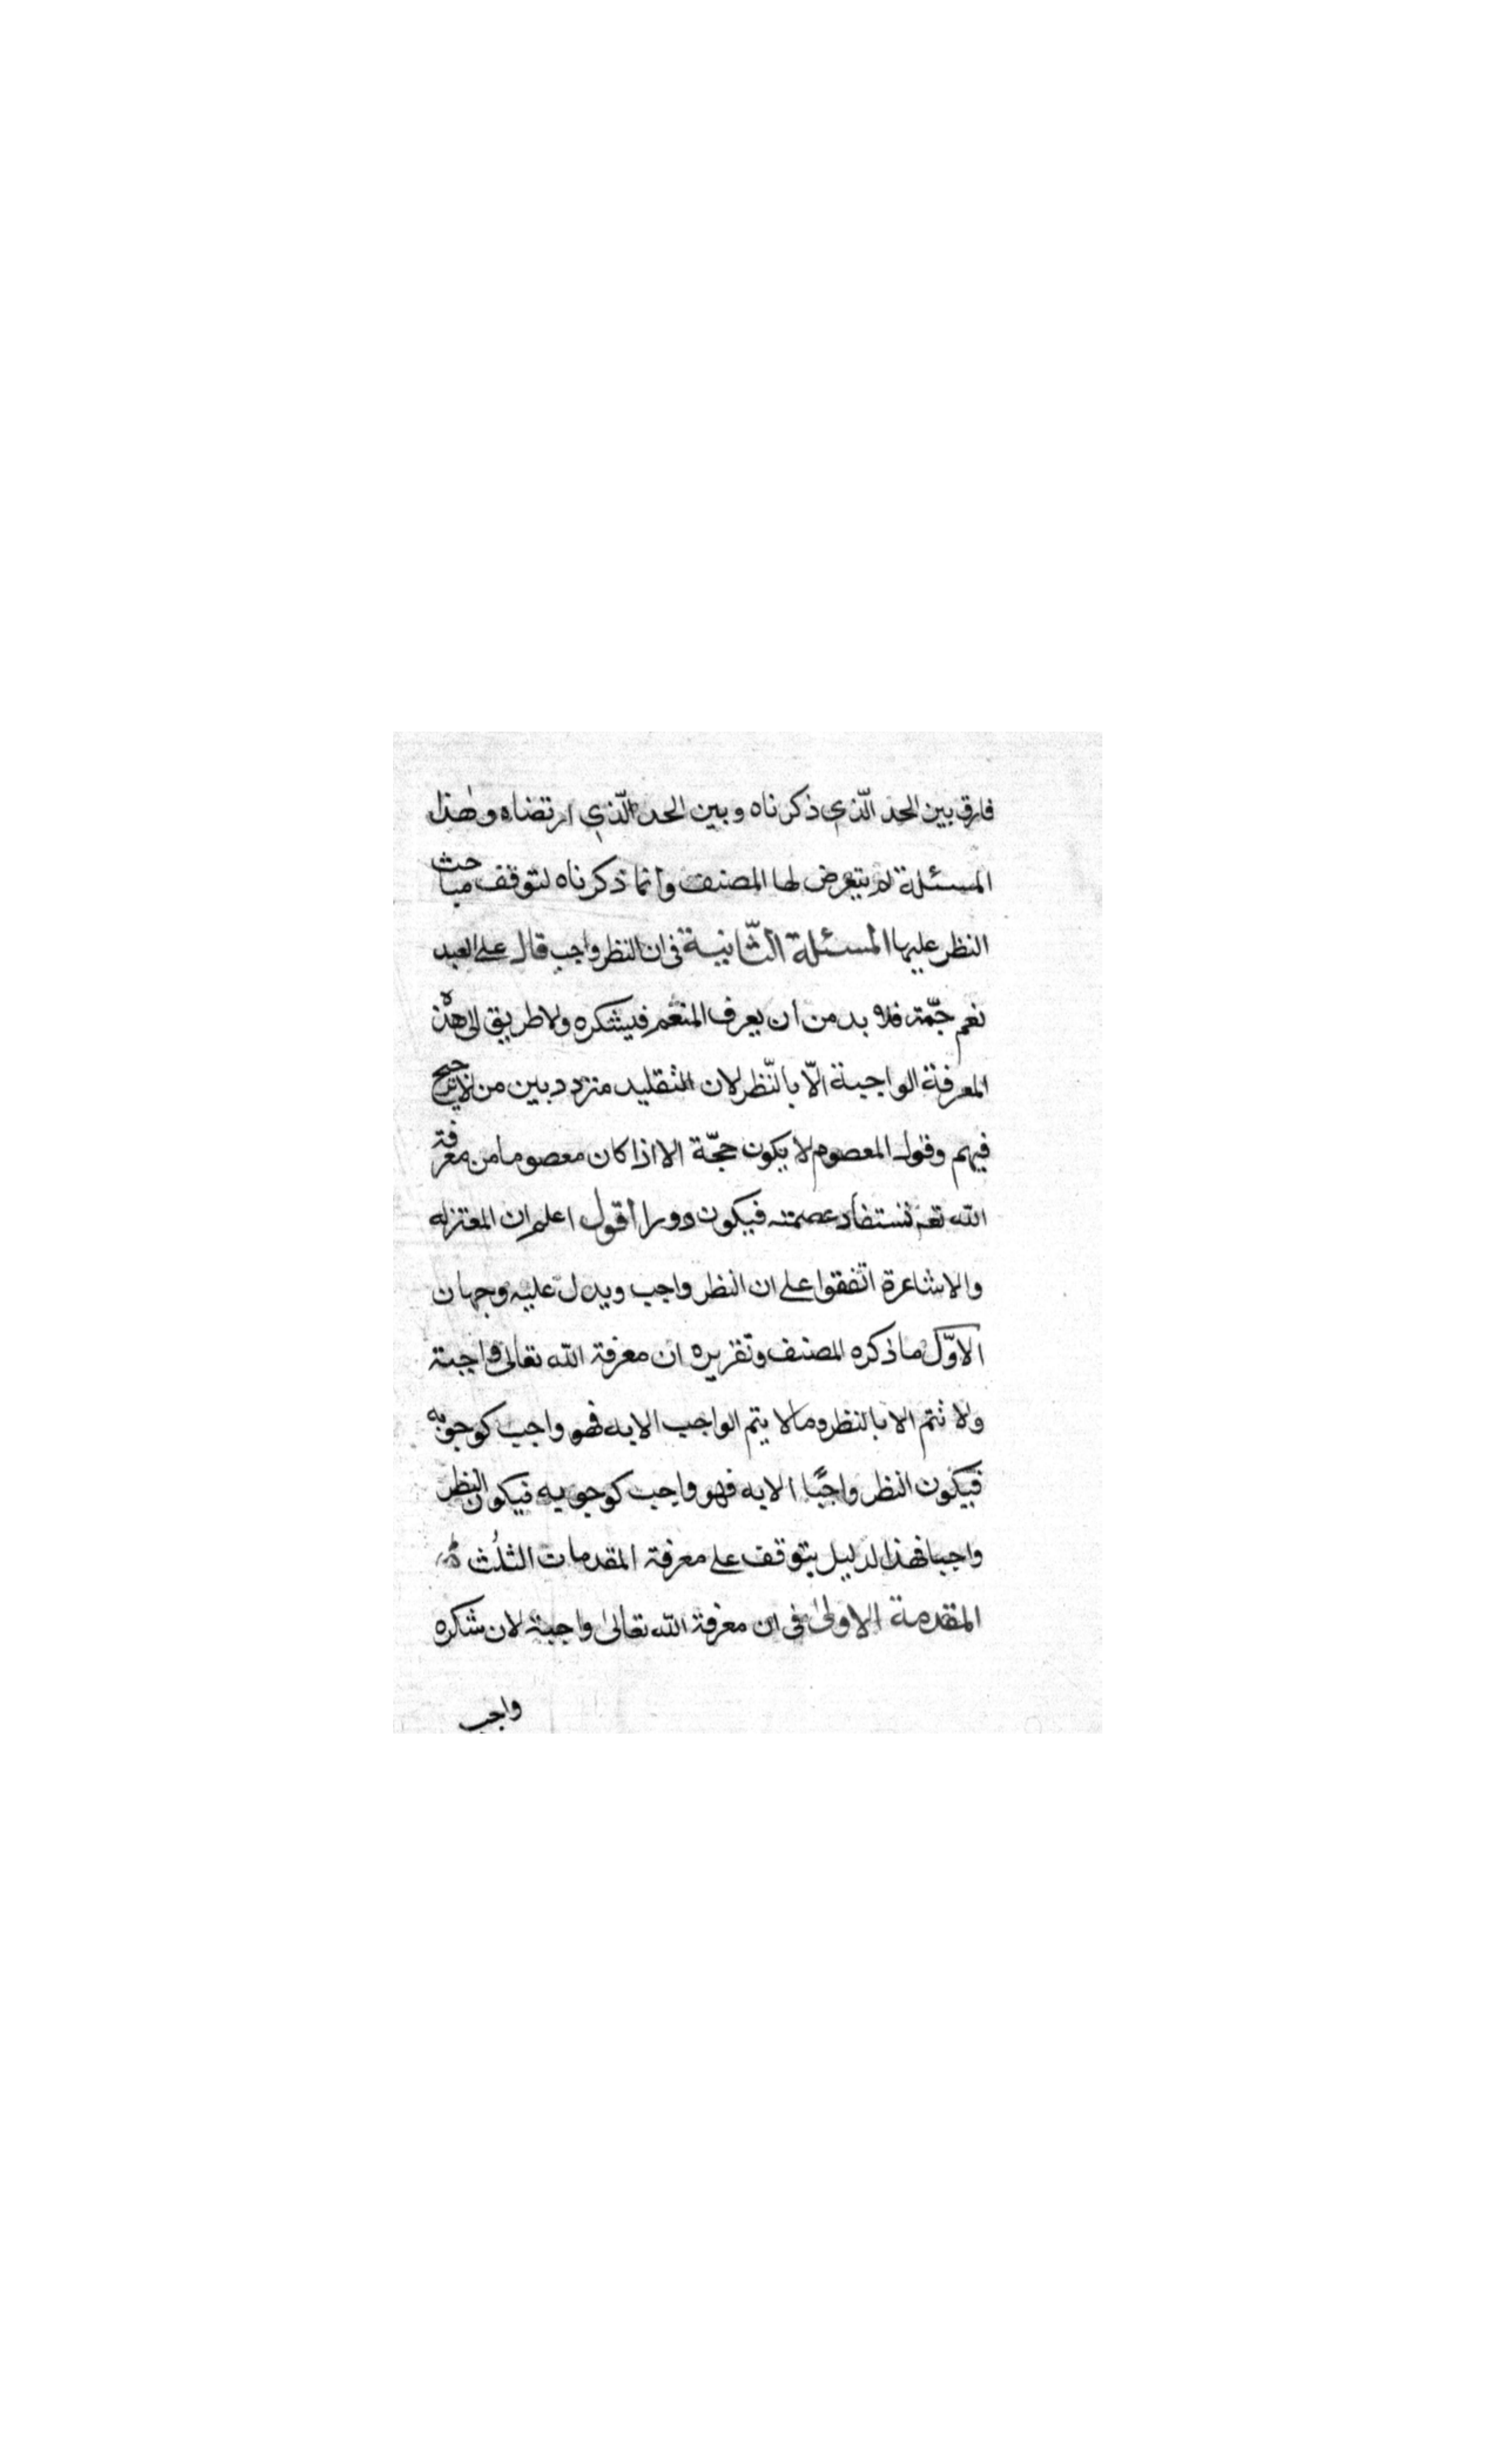 فارق بين الحد الّذي ذكرناه وبين الحد الّذي ارتضاه وهذا
المسئلة لم يتعرض لها المصنف وانما ذكرناه لتوقف مباحث
النظر عليها المسئلة الثّانية في ان النظر واجب قال على العبد
نعم جمّة فلا بد من ان يعرف المنعم فيشكره ولا طريق الى هذه
المعرفة الواجبة الّا بالنّظر لان التقليد متردد بين من لا ترجيح
فيهم وقول المعصوم لا يكون حجّة الا اذا كان معصوما من معرفة
الله تعه تستفاد عصمته فيكون دورا اقول اعلم ان المعتزله
والاشاعرة اتّفقوا على ان النظر واجب ويدل عليه وجهان
الاوّل ما ذكره المصنف وتقريره ان معرفة الله تعالى واجبة
ولا تتم الا بالنظر وما لا يتم الواجب الا به فهو واجب كوجوبه
فيكون النظر واجبًا الا به فهو واجب كوجوبه فيكون النظر
واجبا فهذا الدليل يتوقف على معرفة المقدمات الثلث
المقدمة الاولى في ان معرفة الله تعالى واجبة لان شكره
واجب